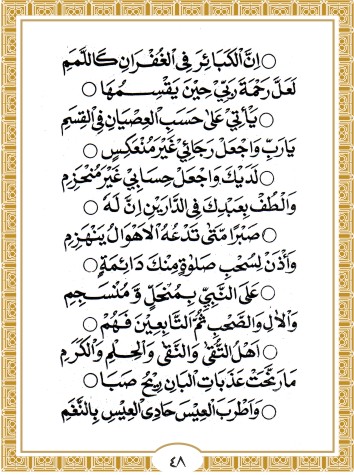 ○ اِنَّ الْكَبَائِرَ فِي الْغُفْرَانِ كَاللَّمَمِ
لَعَلَّ رَحْمَةَ رَبِّيْ حِيْنَ يَقْسِمُهَا ○
○ يَأْتِيْ عَلٰى حَسَبِ الْعِصْيَانِ فِي الْقِسَمِ
يَارَبِّ وَاجْعَلْ رَجَائِيْ غَيْرَ مُنْعَكِسٍ ○
○ لَدَيْكَ وَاجْعَلْ حِسَابِيْ غَيْرَ مُنْخَرِمِ
وَالْطُفْ بِعَبْدِكَ فِي الدَّارَيْنِ اِنَّ لَهٗ ○
○ صَبْرًا مَتٰى تَدْعُهُ الْاَهْوَالُ يَنْهَزِمِ
وَأْذَنْ لِسُحْبِ صَلٰوةٍ مِنْكَ دَائِمَةٍ ○
○ عَلَى النَّبِيِّ بِمُنْهَلٍّ وَّ مُنْسَجِمِ
وَالْاٰلِ وَالصَّحْبِ ثُمَّ التَّابِعِيْنَ فَهُمْ ○
○ اَهْلُ التُّقٰى وَالنَّقٰى وَالْحِلْمِ وَالْكَرَمِ
مَا رَنَّحَتْ عَذَبَاتِ الْبَانِ رِيْحُ صَبَا ○
○ وَاَطْرَبَ الْعِيْسَ حَادِي الْعِيْسِ بِالنَّغَمِ
٤٨